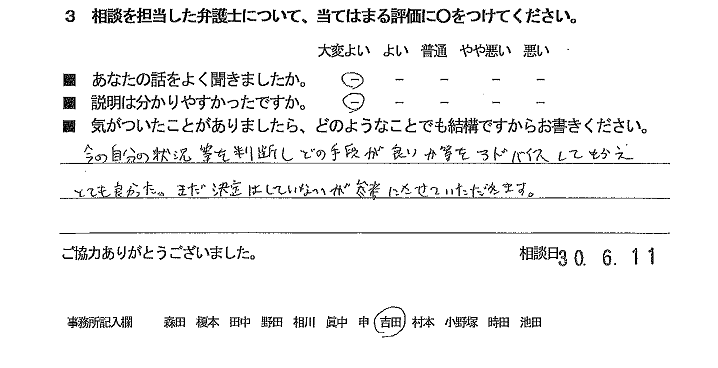 3 相談を担当した弁護士について、当てはまる評価に○をつけてください。
大変よい よい 普通 やや悪い 悪い
あなたの話をよく聞きましたか。 － － － － －
説明は分かりやすかったですか。 － － － － －
気がついたことがありましたら、どのようなことでも結構ですからお書きください。
今の自分の状況等を判断しどの手段が良いか等をアドバイスしてもらえ
とても良かった。まだ決定はしていないが参考にさせていただきます。
ご協力ありがとうございました。 相談日30. 6. 11
事務所記入欄 森田 榎本 田中 野田 相川 眞中 申 吉田 村本 小野塚 時田 池田